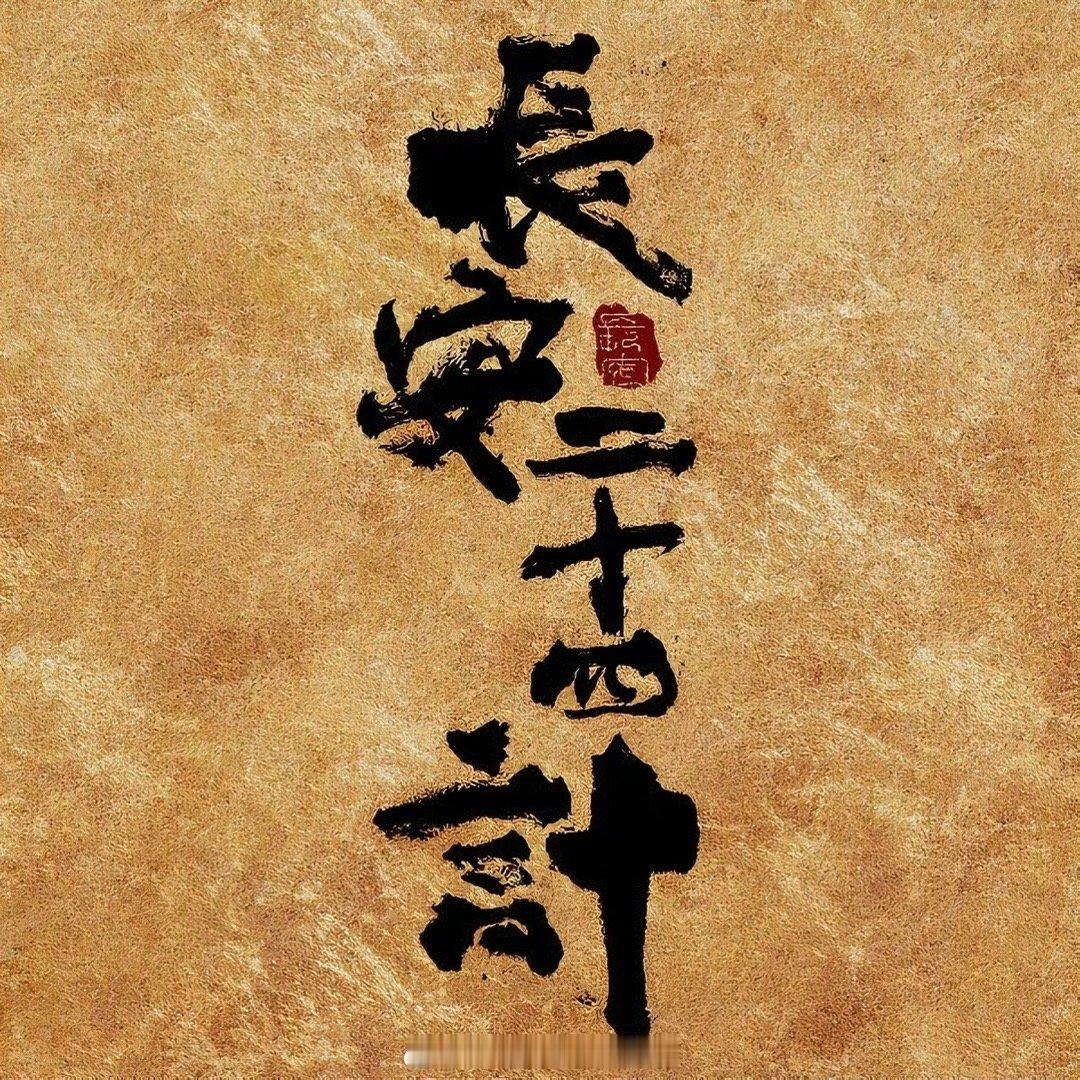 長安二十四計